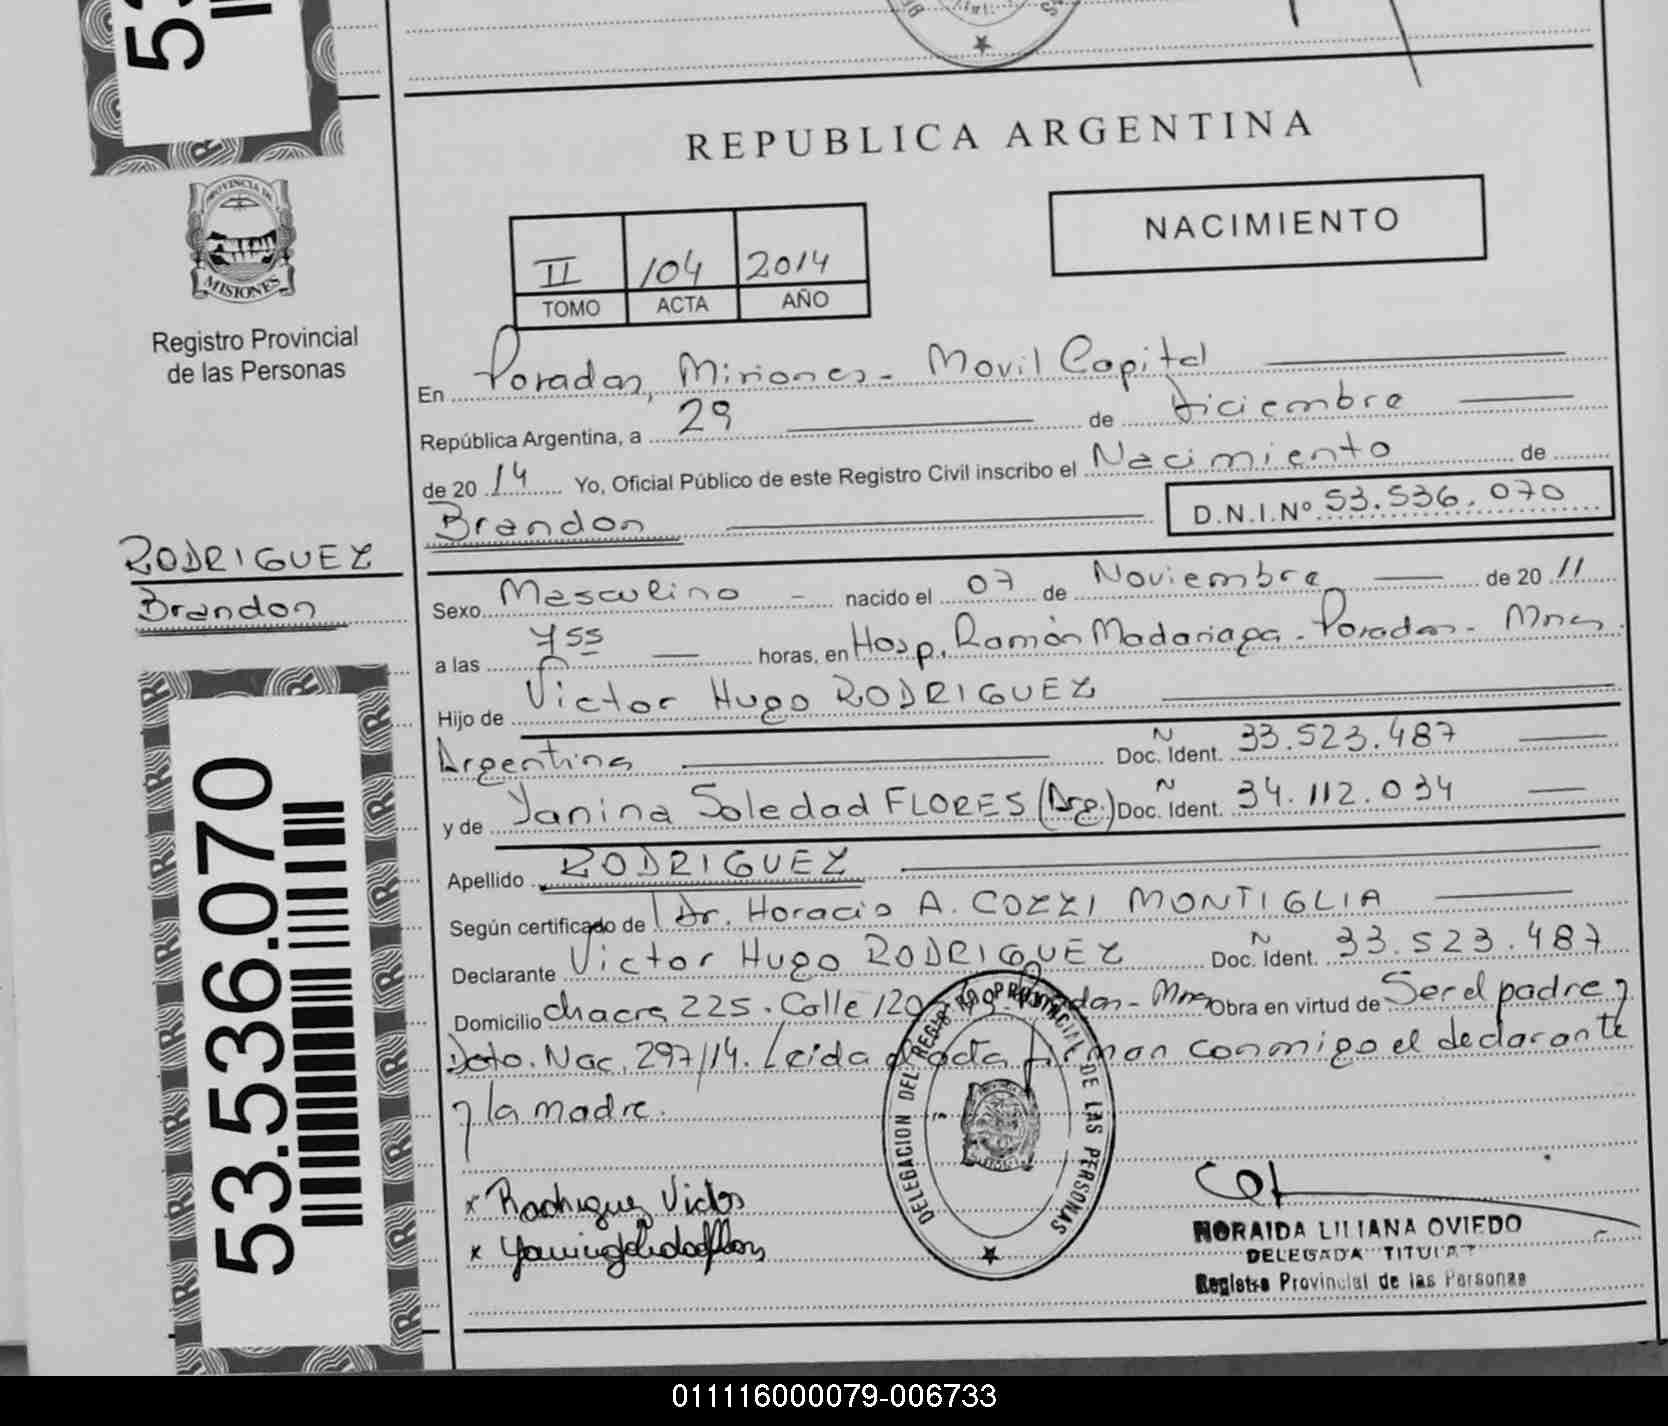 REPUBLICA ARGENTINA
PROVINCIA DE
MISIONES
Registro Provincial
de las Personas
NACIMIENTO
II 104 2014
TOMO ACTA AÑO
En Posadas, Misiones - Movil Capital
República Argentina, a 29 de Diciembre
de 2014 Yo, Oficial Público de este Registro Civil inscribo el Nacimiento de
Brandon D.N.I.Nº 53.536.070
RODRIGUEZ
Brandon
Sexo Masculino - nacido el 07 de Noviembre de 2011
a las 7 55 horas, en Hosp. Ramón Madariaga - Posadas - Mnes
Hijo de Victor Hugo RODRIGUEZ
Argentina Doc. Ident. 33.523.487
y de Yanina Soledad FLORES (Arg.) Doc. Ident. 34.112.034
Apellido RODRIGUEZ
Según certificado de Dr. Horacio A. COZZI MONTIGLIA
Declarante Victor Hugo RODRIGUEZ Doc. Ident. 33.523.487
Domicilio chacra 225. Calle 120 Posadas - Mnes Obra en virtud de Ser el padre y
Dcto. Nac. 297/14. Leida el acta firman conmigo el declarante
y la madre.
53.536.070
DELEGACION DEL REGISTRO PROVINCIAL DE LAS PERSONAS
x Rodriguez Victor
NORAIDA LILIANA OVIEDO
DELEGADA TITULAR
Registro Provincial de las Personas
011116000079-006733